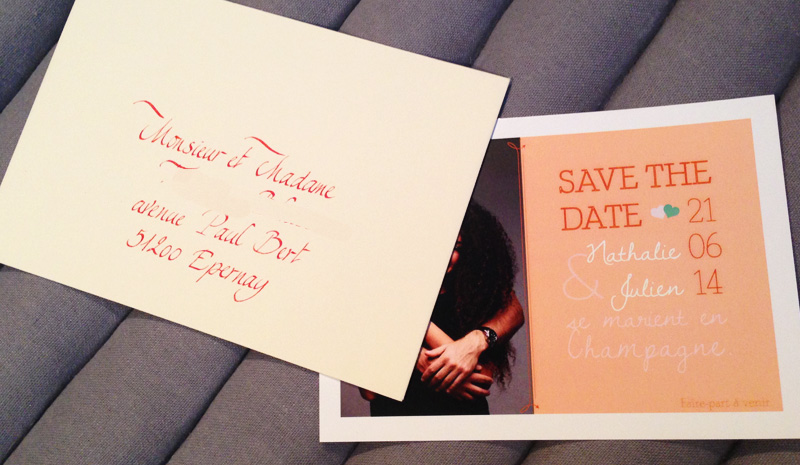 Monsieur et Madame
avenue Paul Bert
51200 Epernay
SAVE THE
DATE 21
Nathalie 06
& Julien 14
se marient en
Champagne.
faire-part à venir